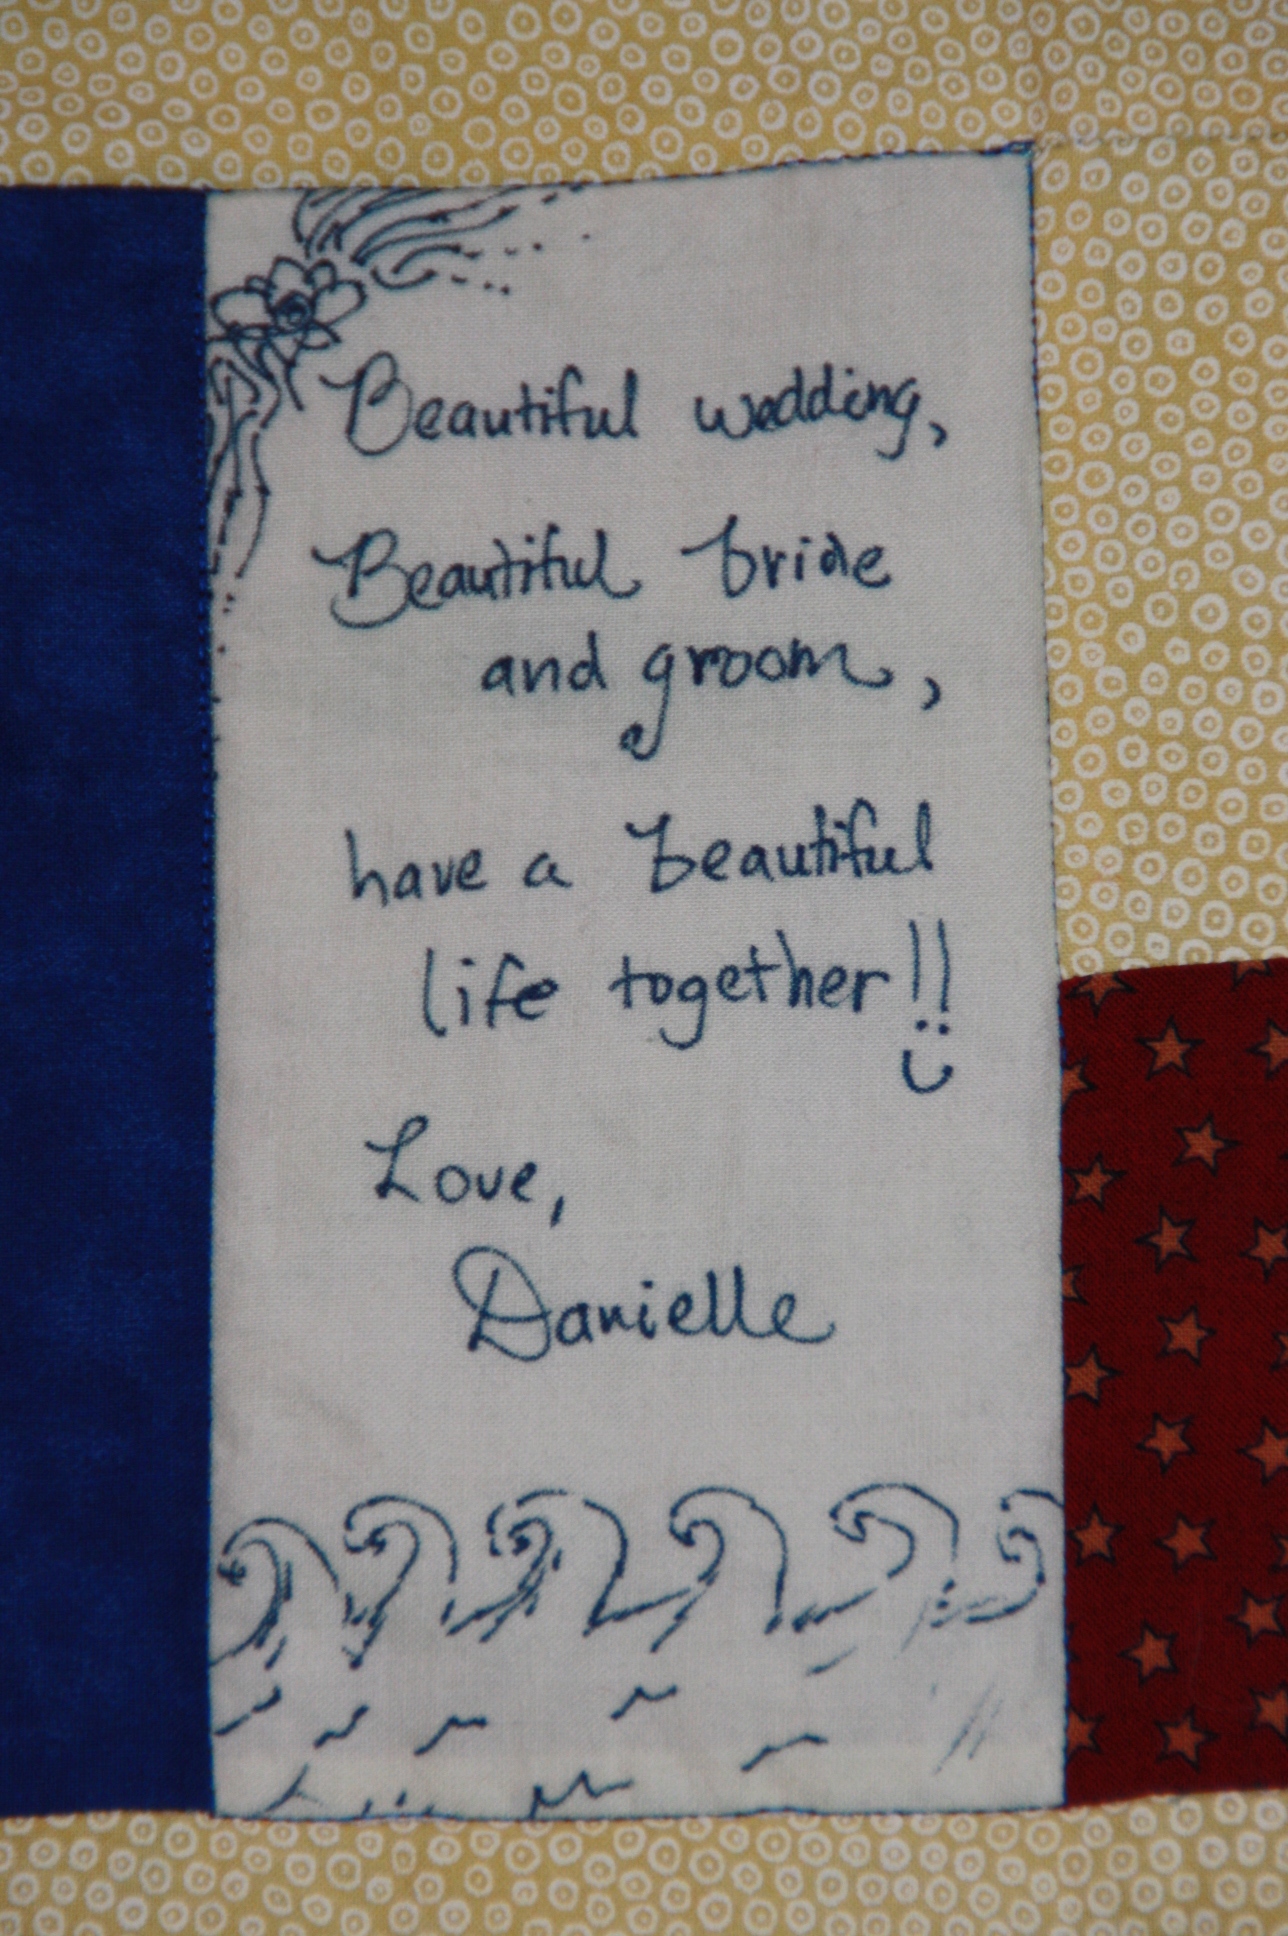 Beautiful wedding,
Beautiful bride
and groom,
have a beautiful
life together!!
Love,
Danielle